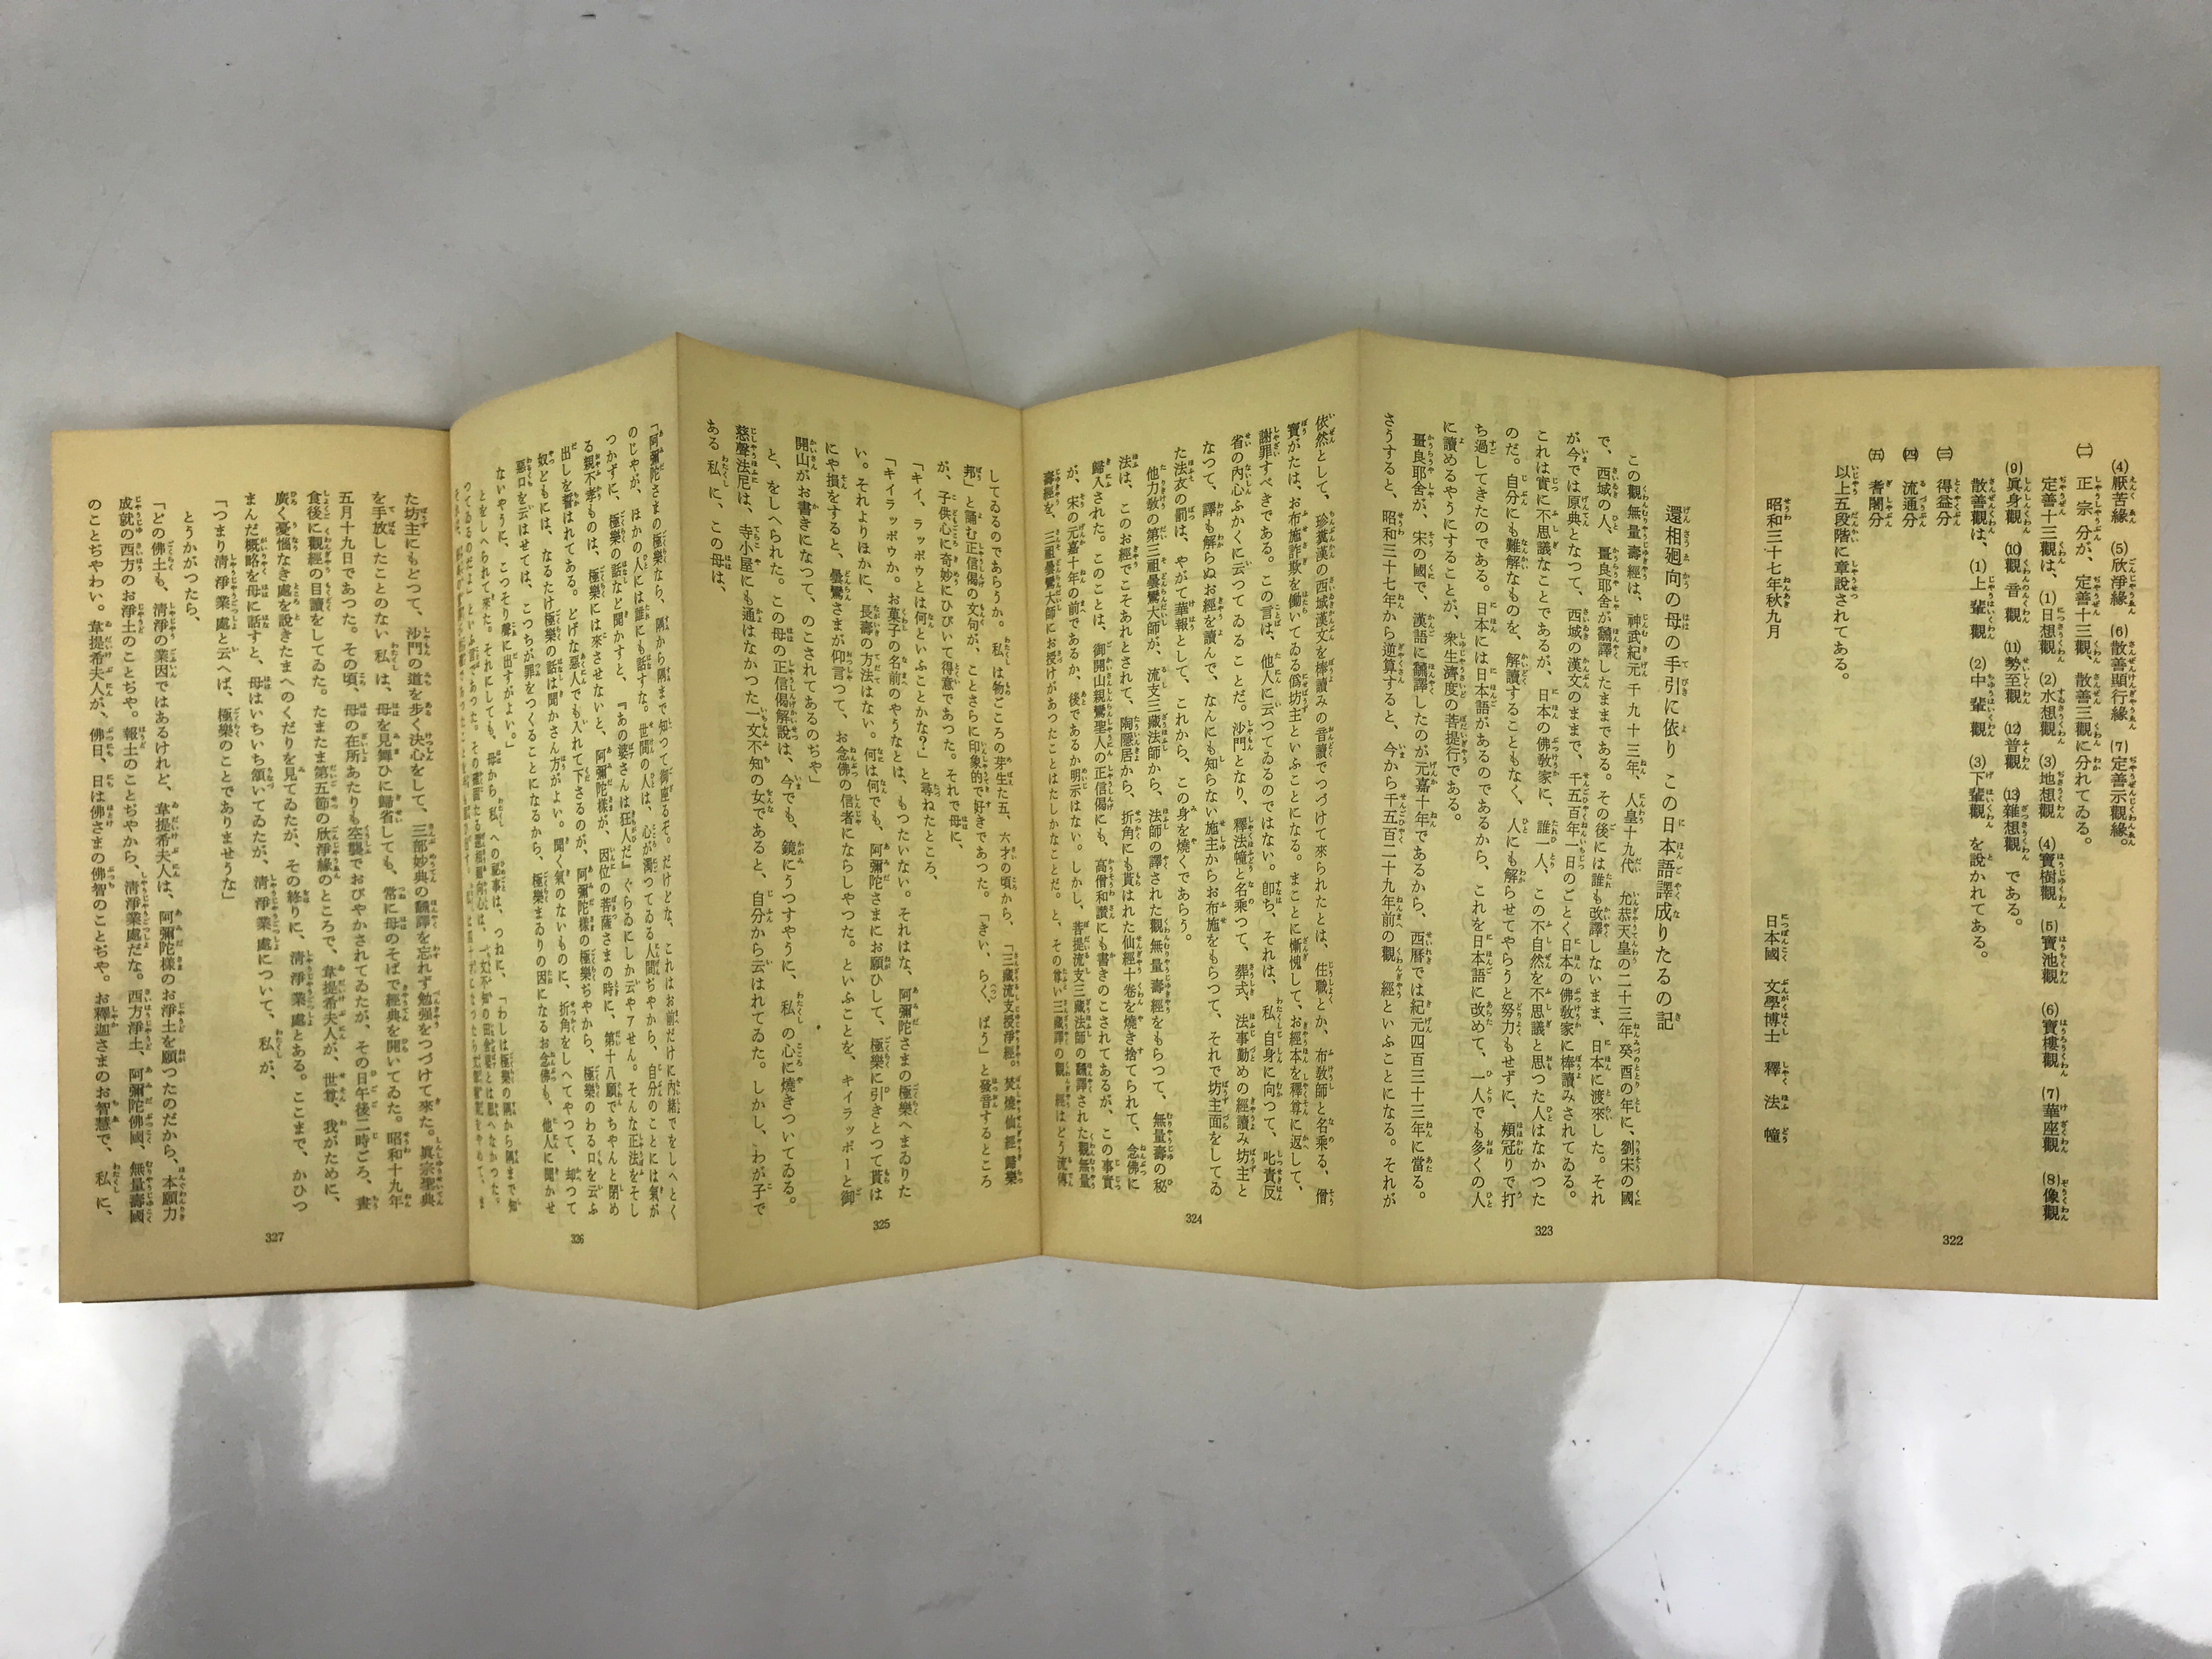 (4)厭苦緣 (5)欣淨緣 (6)散善顯行緣 (7)定善示觀緣。
(二) 正宗分が、定善十三觀、散善三觀に分れてゐる。
定善十三觀は、(1)日想觀 (2)水想觀 (3)地想觀 (4)寶樹觀 (5)寶池觀 (6)寶樓觀 (7)華座觀 (8)像觀
(9)眞身觀 (10)觀音觀 (11)勢至觀 (12)普觀 (13)雜想觀 である。
散善觀は、(1)上輩觀 (2)中輩觀 (3)下輩觀 を說かれてある。
(三) 得益分
(四) 流通分
(五) 耆闍分
以上五段階に章說されてある。
昭和三十七年秋九月
日本國 文學博士 釋法幢
322
還相廻向の母の手引に依り この日本語譯成りたるの記
この觀無量壽經は、神武紀元千九十三年、人皇十九代 允恭天皇の二十三年癸酉の年に、劉宋の國
で、西域の人、畺良耶舍が飜譯したままである。その後には誰も改譯しないまま、日本に渡來した。それ
が今では原典となつて、西域の漢文のままで、千五百年一日のごとく日本の佛敎家に棒讀みされてゐる。
これは實に不思議なことであるが、日本の佛敎家に、誰一人、この不自然を不思議と思つた人はなかつた
のだ。自分にも難解なものを、解讀することもなく、人にも解らせてやらうと努力もせずに、頰冠りで打
ち過してきたのである。日本には日本語があるのであるから、これを日本語に改めて、一人でも多くの人
に讀めるやうにすることが、衆生濟度の菩提行である。
畺良耶舍が、宋の國で、漢語に飜譯したのが元嘉十年であるから、西曆では紀元四百三十三年に當る。
さうすると、昭和三十七年から逆算すると、今から千五百二十九年前の觀經といふことになる。それが
323
依然として、珍糞漢の西域漢文を棒讀みの音讀でつづけて來られたとは、住職とか、布敎師と名乘る、僧
寶がたは、お布施詐欺を働いてゐる僞坊主といふことになる。まことに慚愧して、お經本を釋尊に返して、
謝罪すべきである。この言は、他人に云つてゐるのではない。卽ち、それは、私自身に向つて、叱責反
省の內心ふかくに云つてゐることだ。沙門となり、釋法幢と名乘つて、葬式、法事勤めの經讀み坊主と
なつて、譯も解らぬお經を讀んで、なんにも知らない施主からお布施をもらつて、それで坊主面をしてゐ
た法衣の罰は、やがて華報として、これから、この身を燒くであらう。
他力敎の第三祖曇鸞大師が、流支三藏法師から、法師の譯された觀無量壽經をもらつて、無量壽の秘
法は、このお經でこそあれとされて、陶隱居から、折角にも貰はれた仙經十卷を燒き捨てられて、念佛に
歸入された。このことは、御開山親鸞聖人の正信偈にも、高僧和讚にも書きのこされてあるが、この事實
が、宋の元嘉十年の前であるか、後であるか明示はない。しかし、菩提流支三藏法師の飜譯された觀無量
壽經を、三祖曇鸞大師にお授けがあつたことはたしかなことだ。と、その尊い三藏譯の觀經はどう流傳
324
してゐるのであらうか。私は物ごころの芽生た五、六才の頃から、「三藏流支授淨經。焚燒仙經歸樂
邦」と誦む正信偈の文句が、ことさらに印象的で好きであつた。「きい、らく、ばう」と發音するところ
が、子供心に奇妙にひびいて得意であつた。それで母に、
「キイ、ラッボウとは何といふことかな？」と尋ねたところ、
「キイラッボウか。お菓子の名前のやうなとは、もつたいない。それはな、阿彌陀さまの極樂へまゐりた
い。それよりほかに、長壽の方法はない。何は何でも、阿彌陀さまにお願ひして、極樂に引きとつて貰は
にや損をすると、曇鸞さまが仰言つて、お念佛の信者にならしやつた。といふことを、キイラッボーと御
開山がお書きになつて、のこされてあるのぢや」
と、をしへられた。この母の正信偈解說は、今でも、鏡にうつすやうに、私の心に燒きついてゐる。
慈聲法尼は、寺小屋にも通はなかつた一文不知の女であると、自分から云はれてゐた。しかし、わが子で
ある私に、この母は、
325
「阿彌陀さまの極樂なら、隅から隅まで知つて御座るぞ。だけどな、これはお前だけに內緖でをしへとく
のじやが、ほかの人には誰にも話すな。世間の人は、心が濁つてゐる人間ぢやから、自分のことには氣が
つかずに、極樂の話など聞かすと、『あの婆さんは狂人だ』ぐらゐにしか云やアせん。そんな正法をそし
る親不孝ものは、極樂には來させないと、阿彌陀樣が、因位の菩薩さまの時に、第十八願でちやんと閉め
出しを誓はれてある。どげな惡人でも入れて下さるのが、阿彌陀樣の極樂ぢやから、極樂のわる口を云ふ
奴どもには、なるたけ極樂の話は聞かさん方がよい。聞く氣のないものに、折角をしへてやつて、却つて
惡口を云はせては、こつちが罪をつくることになるから、極樂まゐりの因になるお念佛も、他人に聞かせ
ないやうに、こつそり聲に出すがよい。」
とをしへられて來た。それにしても、母から、私への記事は、つねに、「わしは極樂の隅から隅まで知
つてゐるのだよ」といふ言であつた。その
326
た坊主にもどつて、沙門の道を步く決心をして、三部妙典の飜譯を忘れず勉强をつづけて來た。眞宗聖典
を手放したことのない私は、母を見舞ひに歸省しても、常に母のそばで經典を開いてゐた。昭和十九年
五月十九日であつた。その頃、母の在所あたりも空襲でおびやかされてゐたが、その日午後二時ごろ、晝
食後に觀經の目讀をしてゐた。たまたま第五節の欣淨緣のところで、韋提希夫人が、世尊、我がために、
廣く憂惱なき處を說きたまへのくだりを見てゐたが、その終りに、清淨業處とある。ここまで、かひつ
まんだ槪略を母に話すと、母はいちいち頷いてゐたが、清淨業處について、私が、
「つまり清淨業處と云へば、極樂のことでありませうな」
とうかがつたら、
「どの佛土も、清淨の業因ではあるけれど、韋提希夫人は、阿彌陀樣のお淨土を願つたのだから、本願力
成就の西方のお淨土のことぢや。報土のことぢやから、清淨業處だな。西方淨土、阿彌陀佛國、無量壽國
のことぢやわい。韋提希夫人が、佛日、日は佛さまの佛智のことぢや。お釋迦さまのお智慧で、私に、
327